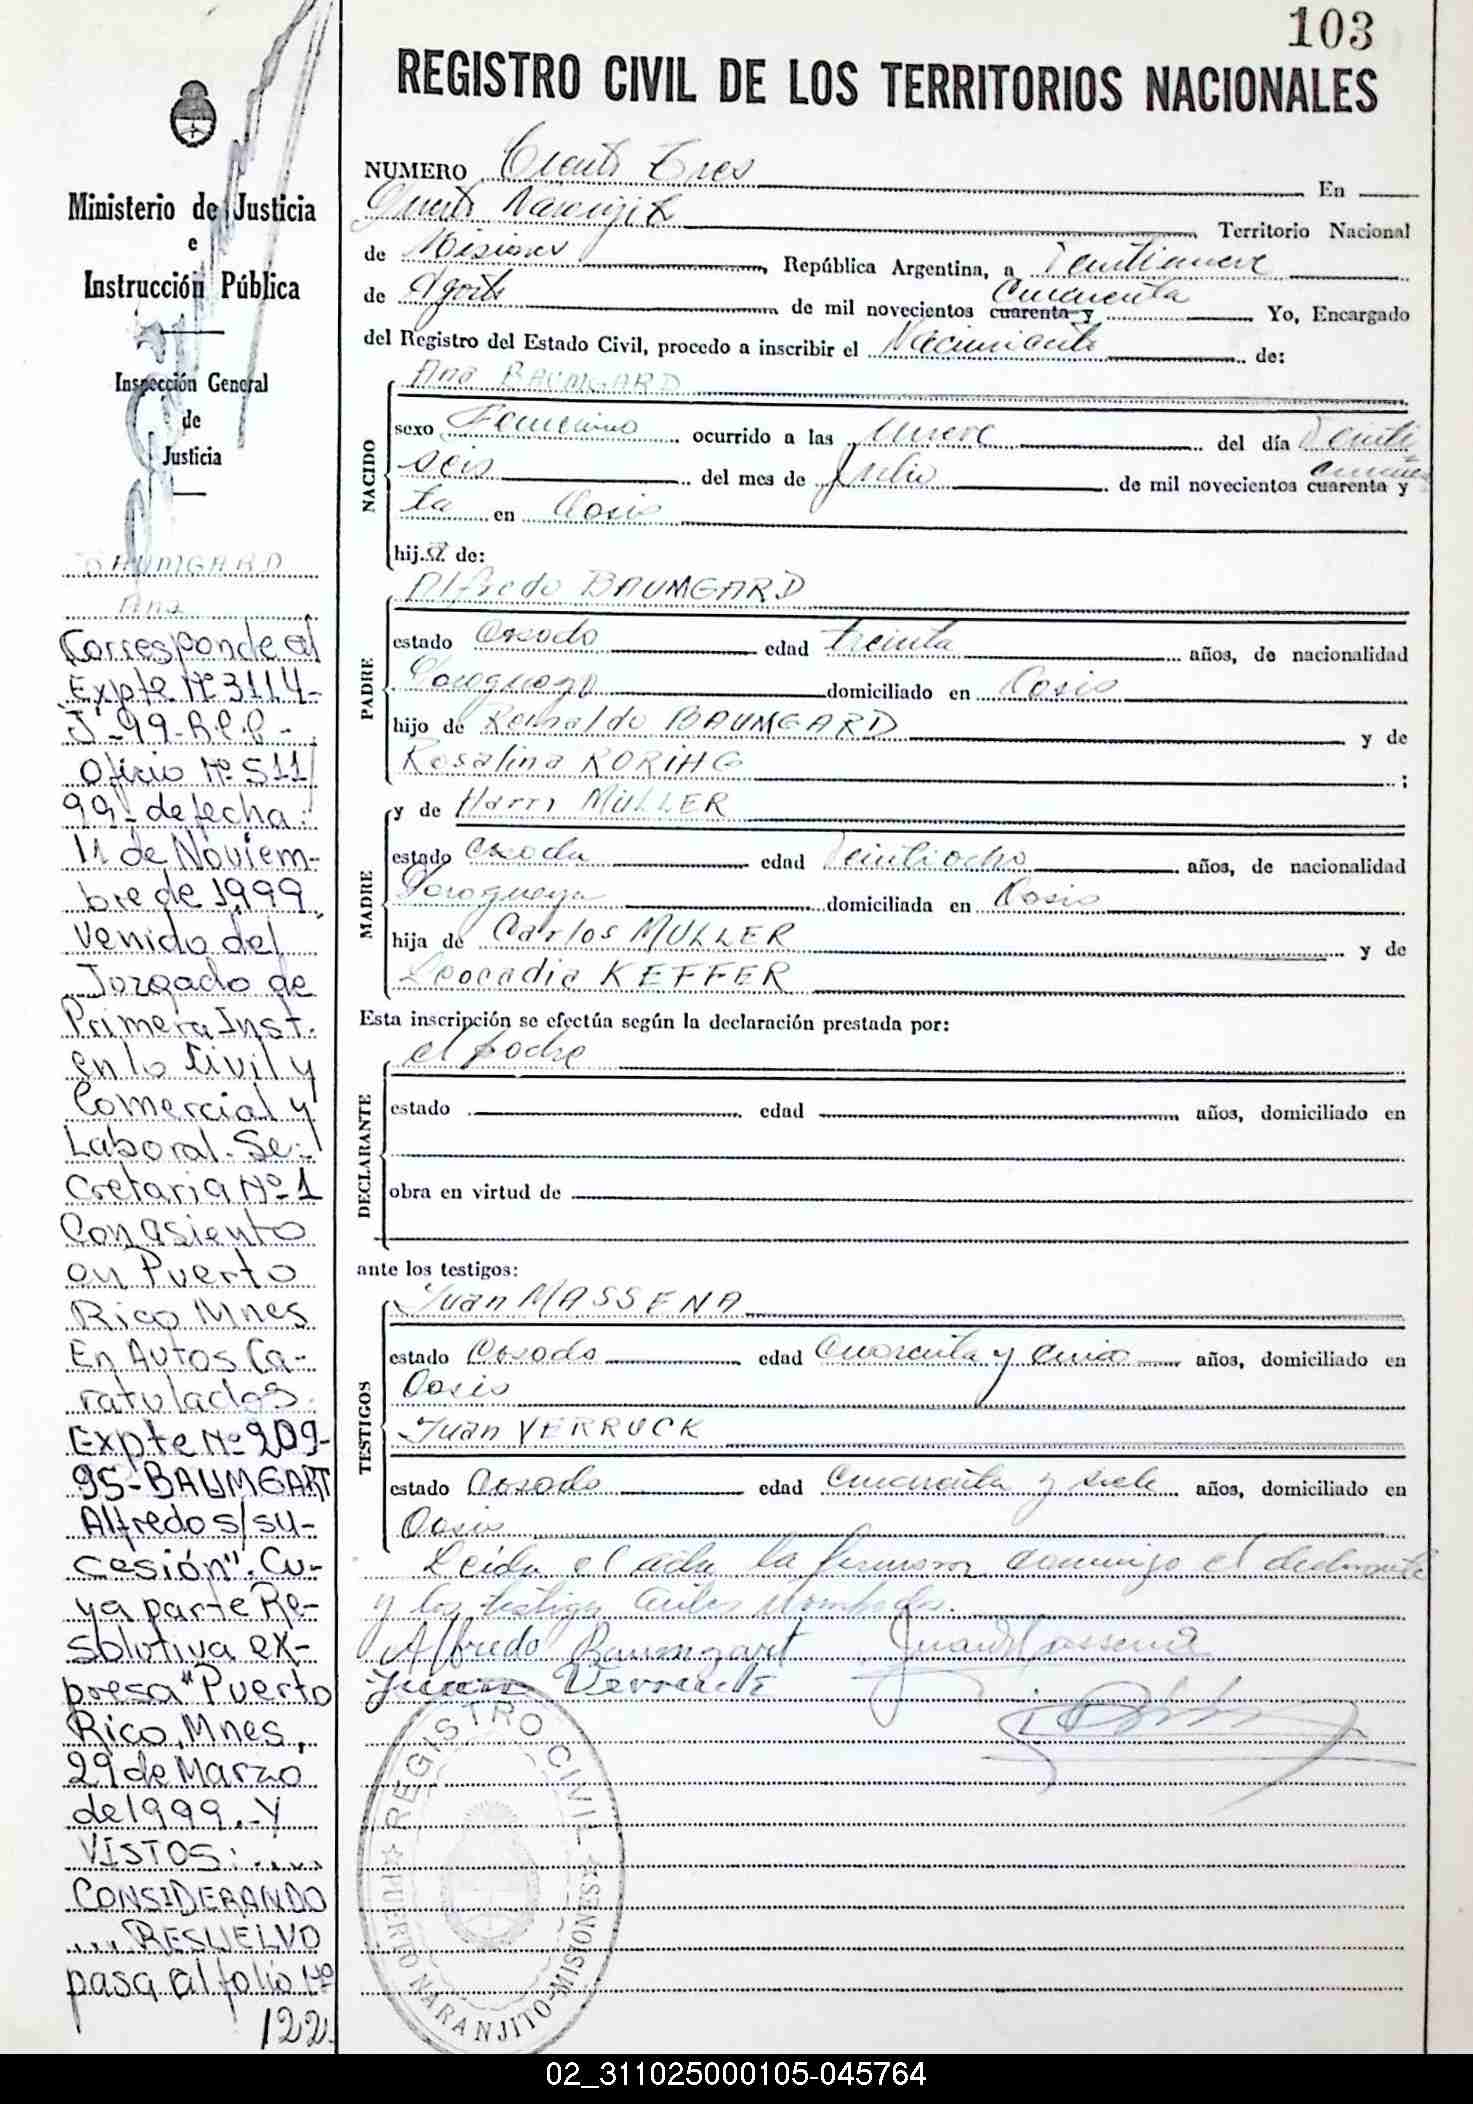 103
REGISTRO CIVIL DE LOS TERRITORIOS NACIONALES
NUMERO Ciento Tres En
Puerto Naranjito Territorio Nacional
de Misiones República Argentina, a Veintinueve
de Agosto de mil novecientos cuarenta y Cincuenta Yo, Encargado
del Registro del Estado Civil, procedo a inscribir el Nacimiento de:
NACIDO
Ana BAUMGARD
sexo Femenino ocurrido a las nueve del día Veinti
seis del mes de Julio de mil novecientos cuarenta y cincuen
ta en Oasis
hija de:
PADRE
Alfredo BAUMGARD
estado Casado edad treinta años, de nacionalidad
Paraguayo domiciliado en Oasis
hijo de Reinaldo BAUMGARD y de
Rosalina RORIHG ;
MADRE
y de Harri MULLER
estado Casada edad Veintiocho años, de nacionalidad
Paraguaya domiciliada en Oasis
hija de Carlos MULLER y de
Leocadia KEFFER
Esta inscripción se efectúa según la declaración prestada por:
DECLARANTE
el padre
estado edad años, domiciliado en
obra en virtud de
ante los testigos:
TESTIGOS
Juan MASSENA
estado Casado edad Cuarenta y cinco años, domiciliado en
Oasis
Juan VERRUCK
estado Casado edad Cuarenta y siete años, domiciliado en
Oasis
Leída el acta la firmaron conmigo el declarante
y los testigos antes nombrados.
Alfredo Baumgart Juan Massena
Juan Verruck
REGISTRO CIVIL
PUERTO NARANJITO-MISIONES
Ministerio de Justicia
e
Instrucción Pública
Inspección General
de
Justicia
BAUMGARD
Ana
Corresponde al
Expte Nº 3114-
J-99-R.P.P.-
Oficio Nº 511/
99- de fecha
11 de Noviem-
bre de 1999,
venido del
Juzgado de
Primera Inst.
en lo Civil y
Comercial y
Laboral. Se-
cretaria Nº 1
Con asiento
en Puerto
Rico Mnes
En Autos Ca-
ratulados.
Expte Nº 209-
95-BAUMGART
Alfredo s/su-
cesión". Cu-
ya parte Re-
solutiva ex-
presa "Puerto
Rico, Mnes,
29 de Marzo
de 1999.-Y
VISTOS:.....
CONSIDERANDO
....RESUELVO
pasa al folio Nº
122.
02_311025000105-045764